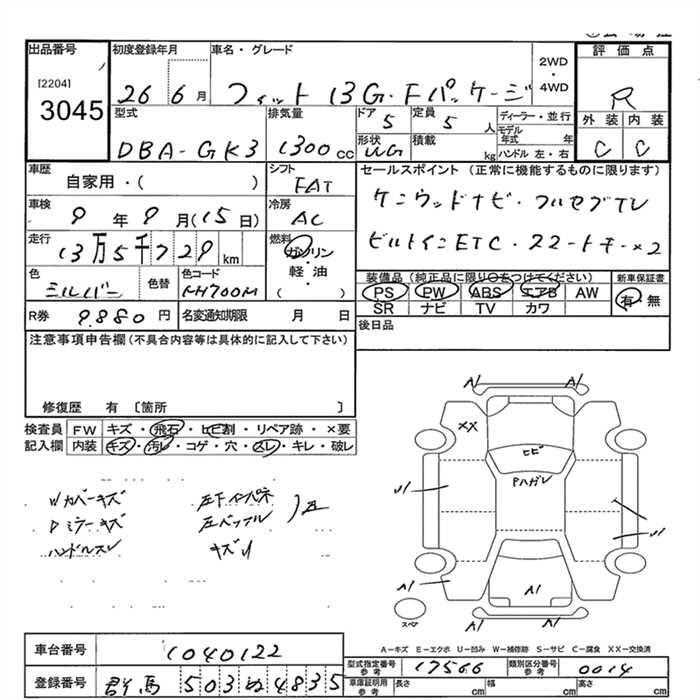 出品番号 初度登録年月 車名・グレード 評価点
[2204]
3045
26 6月 フィット 13G・Fパッケージ 2WD・4WD R
型式 排気量 ドア 定員 ディーラー・並行 外装 内装
DBA-GK3 1300cc 5 5人 モデル年式 年 C C
形状 WG 積載 kg ハンドル 左・右
車歴 シフト セールスポイント(正常に機能するものに限ります)
自家用・( ) FAT
ケンウッドナビ・フルセグTV
車検 冷房
9年9月(15日) AC
ビルトインETC・スマートキー×2
走行 燃料
13万5千729km ガソリン
軽・油
( )
装備品(純正品に限り○をつけてください) 新車保証書
PS PW ABS エアB AW 有・無
SR ナビ TV カワ
色 色替 色コード
シルバー NH700M
R券 9,880円 名変通知期限 月 日 後日品
注意事項申告欄(不具合内容等は具体的に記入して下さい)
修復歴 有 〔箇所 〕
検査員 FW キズ・飛石・ヒビ割・リペア跡・×要
記入欄 内装 キズ・汚レ・コゲ・穴・スレ・キレ・破レ
Wカバーキズ 左下インパネ
Dミラーキズ 左バッフル
ハンドルスレ キズ
A1 A1
XX
ヒビ
Pハガレ
A1 A1 A1
スペア
A-キズ E-エクボ U-凹み W-補修跡 S-サビ C-腐食 XX-交換済
車台番号 1040122 型式指定番号 参考 17566 類別区分番号 参考 0014
登録番号 群馬 503 4835 車庫証明用 参考 長さ cm 幅 cm 高さ cm